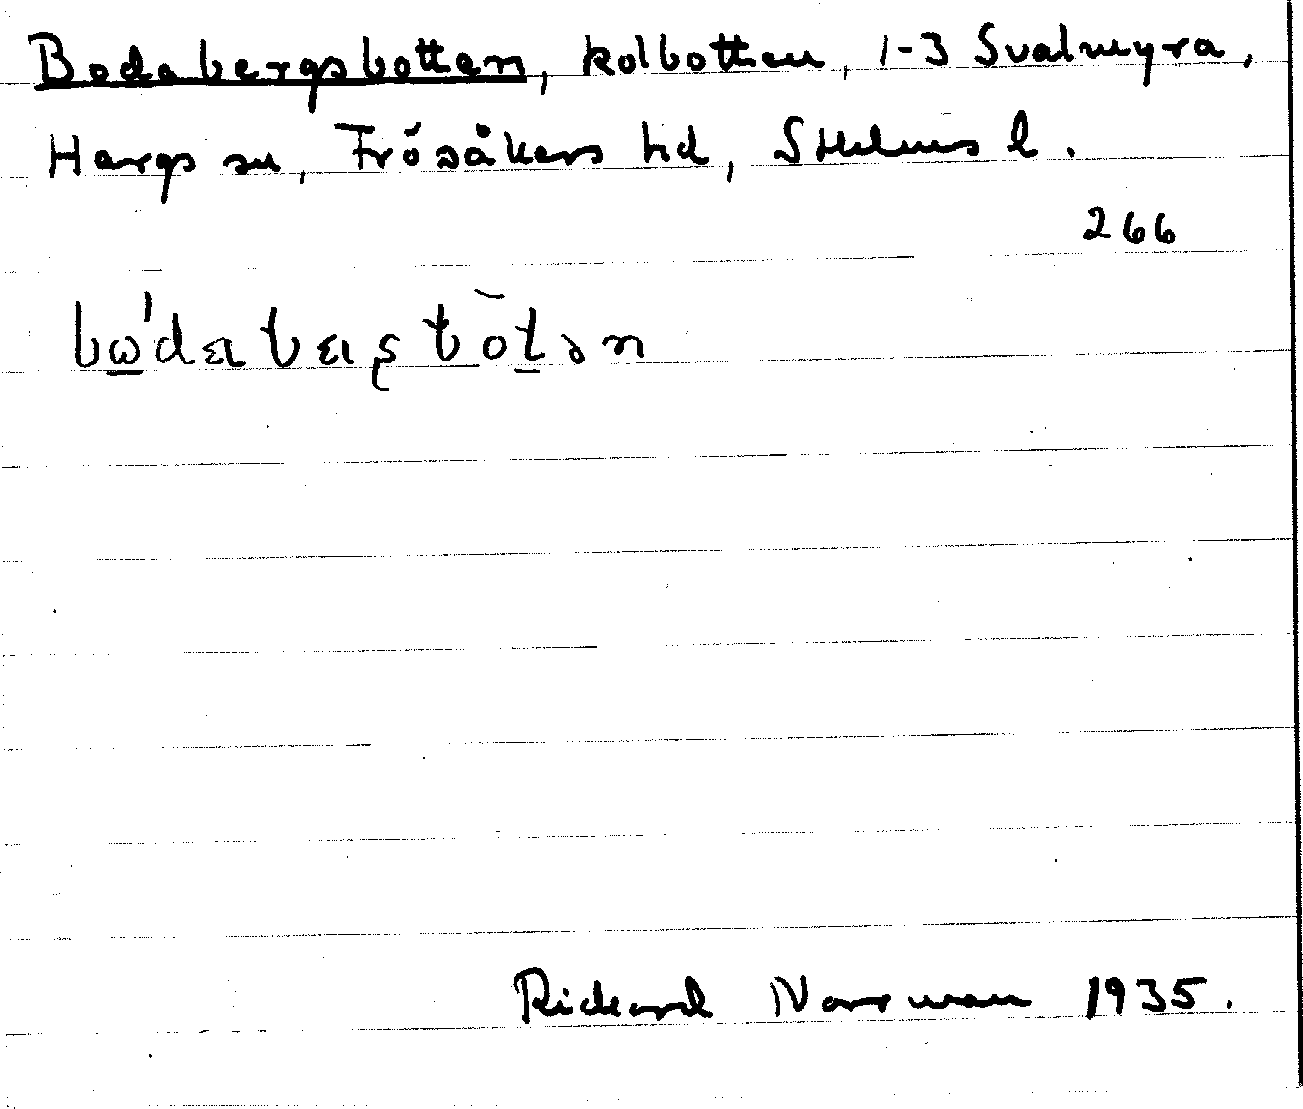 Bodabergsbotten, kolbotten, 1-3 Svalmyra,
Hargs sn, Frösåkers hd, Sthlms l.
266
bω̲'daban̲ʂbòt̲ən
Rickard Norrman 1935.